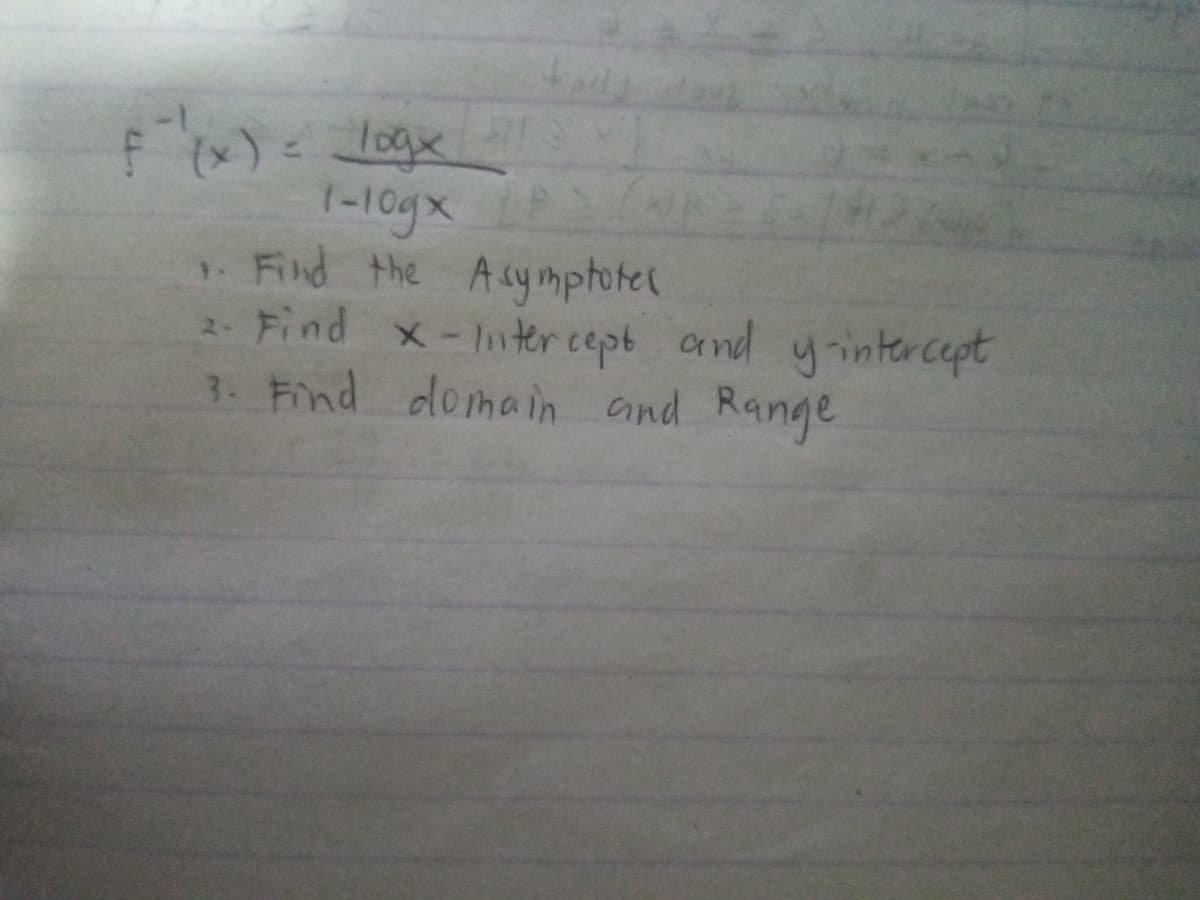 F⁻¹(x) = logx
1-logx
1. Find the Asymptotes
2- Find x-Intercept and y-intercept
3. Find domain and Range